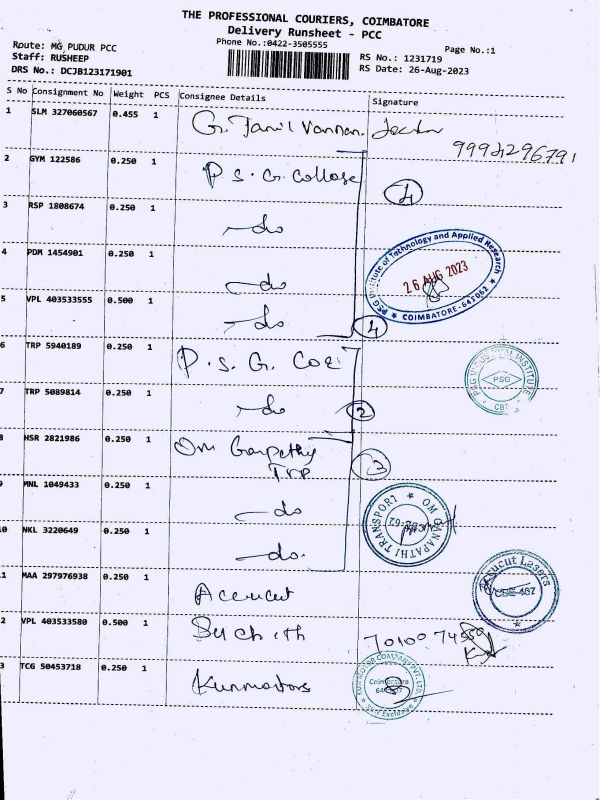 THE PROFESSIONAL COURIERS, COIMBATORE
Delivery Runsheet - PCC
Phone No.:0422-3505555
Page No.:1
Route: MG PUDUR PCC
Staff: RUSHEEP
DRS No.: DCJB123171901
RS No.: 1231719
RS Date: 26-Aug-2023
S No Consignment No Weight PCS Consignee Details Signature
1 SLM 327060567 0.455 1 G. Tamil Vannan.
9994296791
2 GYM 122586 0.250 1 P.S.G. College
4
3 RSP 1808674 0.250 1 do
PSG Institute of Technology and Applied Research
26 AUG 2023
COIMBATORE-641062
4 PDM 1454901 0.250 1 do
5 VPL 403533555 0.500 1 do
4
6 TRP 5940189 0.250 1 P.S.G. COE
PSG INDUSTRIAL INSTITUTE
PSG
CBE
7 TRP 5089814 0.250 1 do
2
8 HSR 2821986 0.250 1 Om Ganpathy
Trp
3
9 MNL 1049433 0.250 1 do
OM GANAPATHI TRANSPORT
10 NKL 3220649 0.250 1 do.
11 MAA 297976938 0.250 1 Accucut
Accucut Lasers
12 VPL 403533580 0.500 1 Suchith
13 TCG 50453718 0.250 1 Kunmotors
KUN MOTOR COMPANY PVT.LTD.
Coimbatore